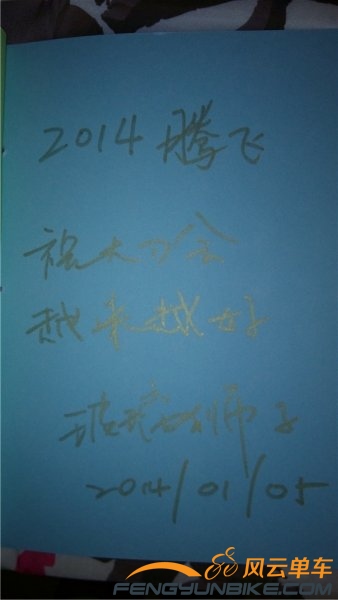 2014 腾飞
祝大会
越来越好
老师
2014/01/05
风云单车
FENGYUNBIKE.COM